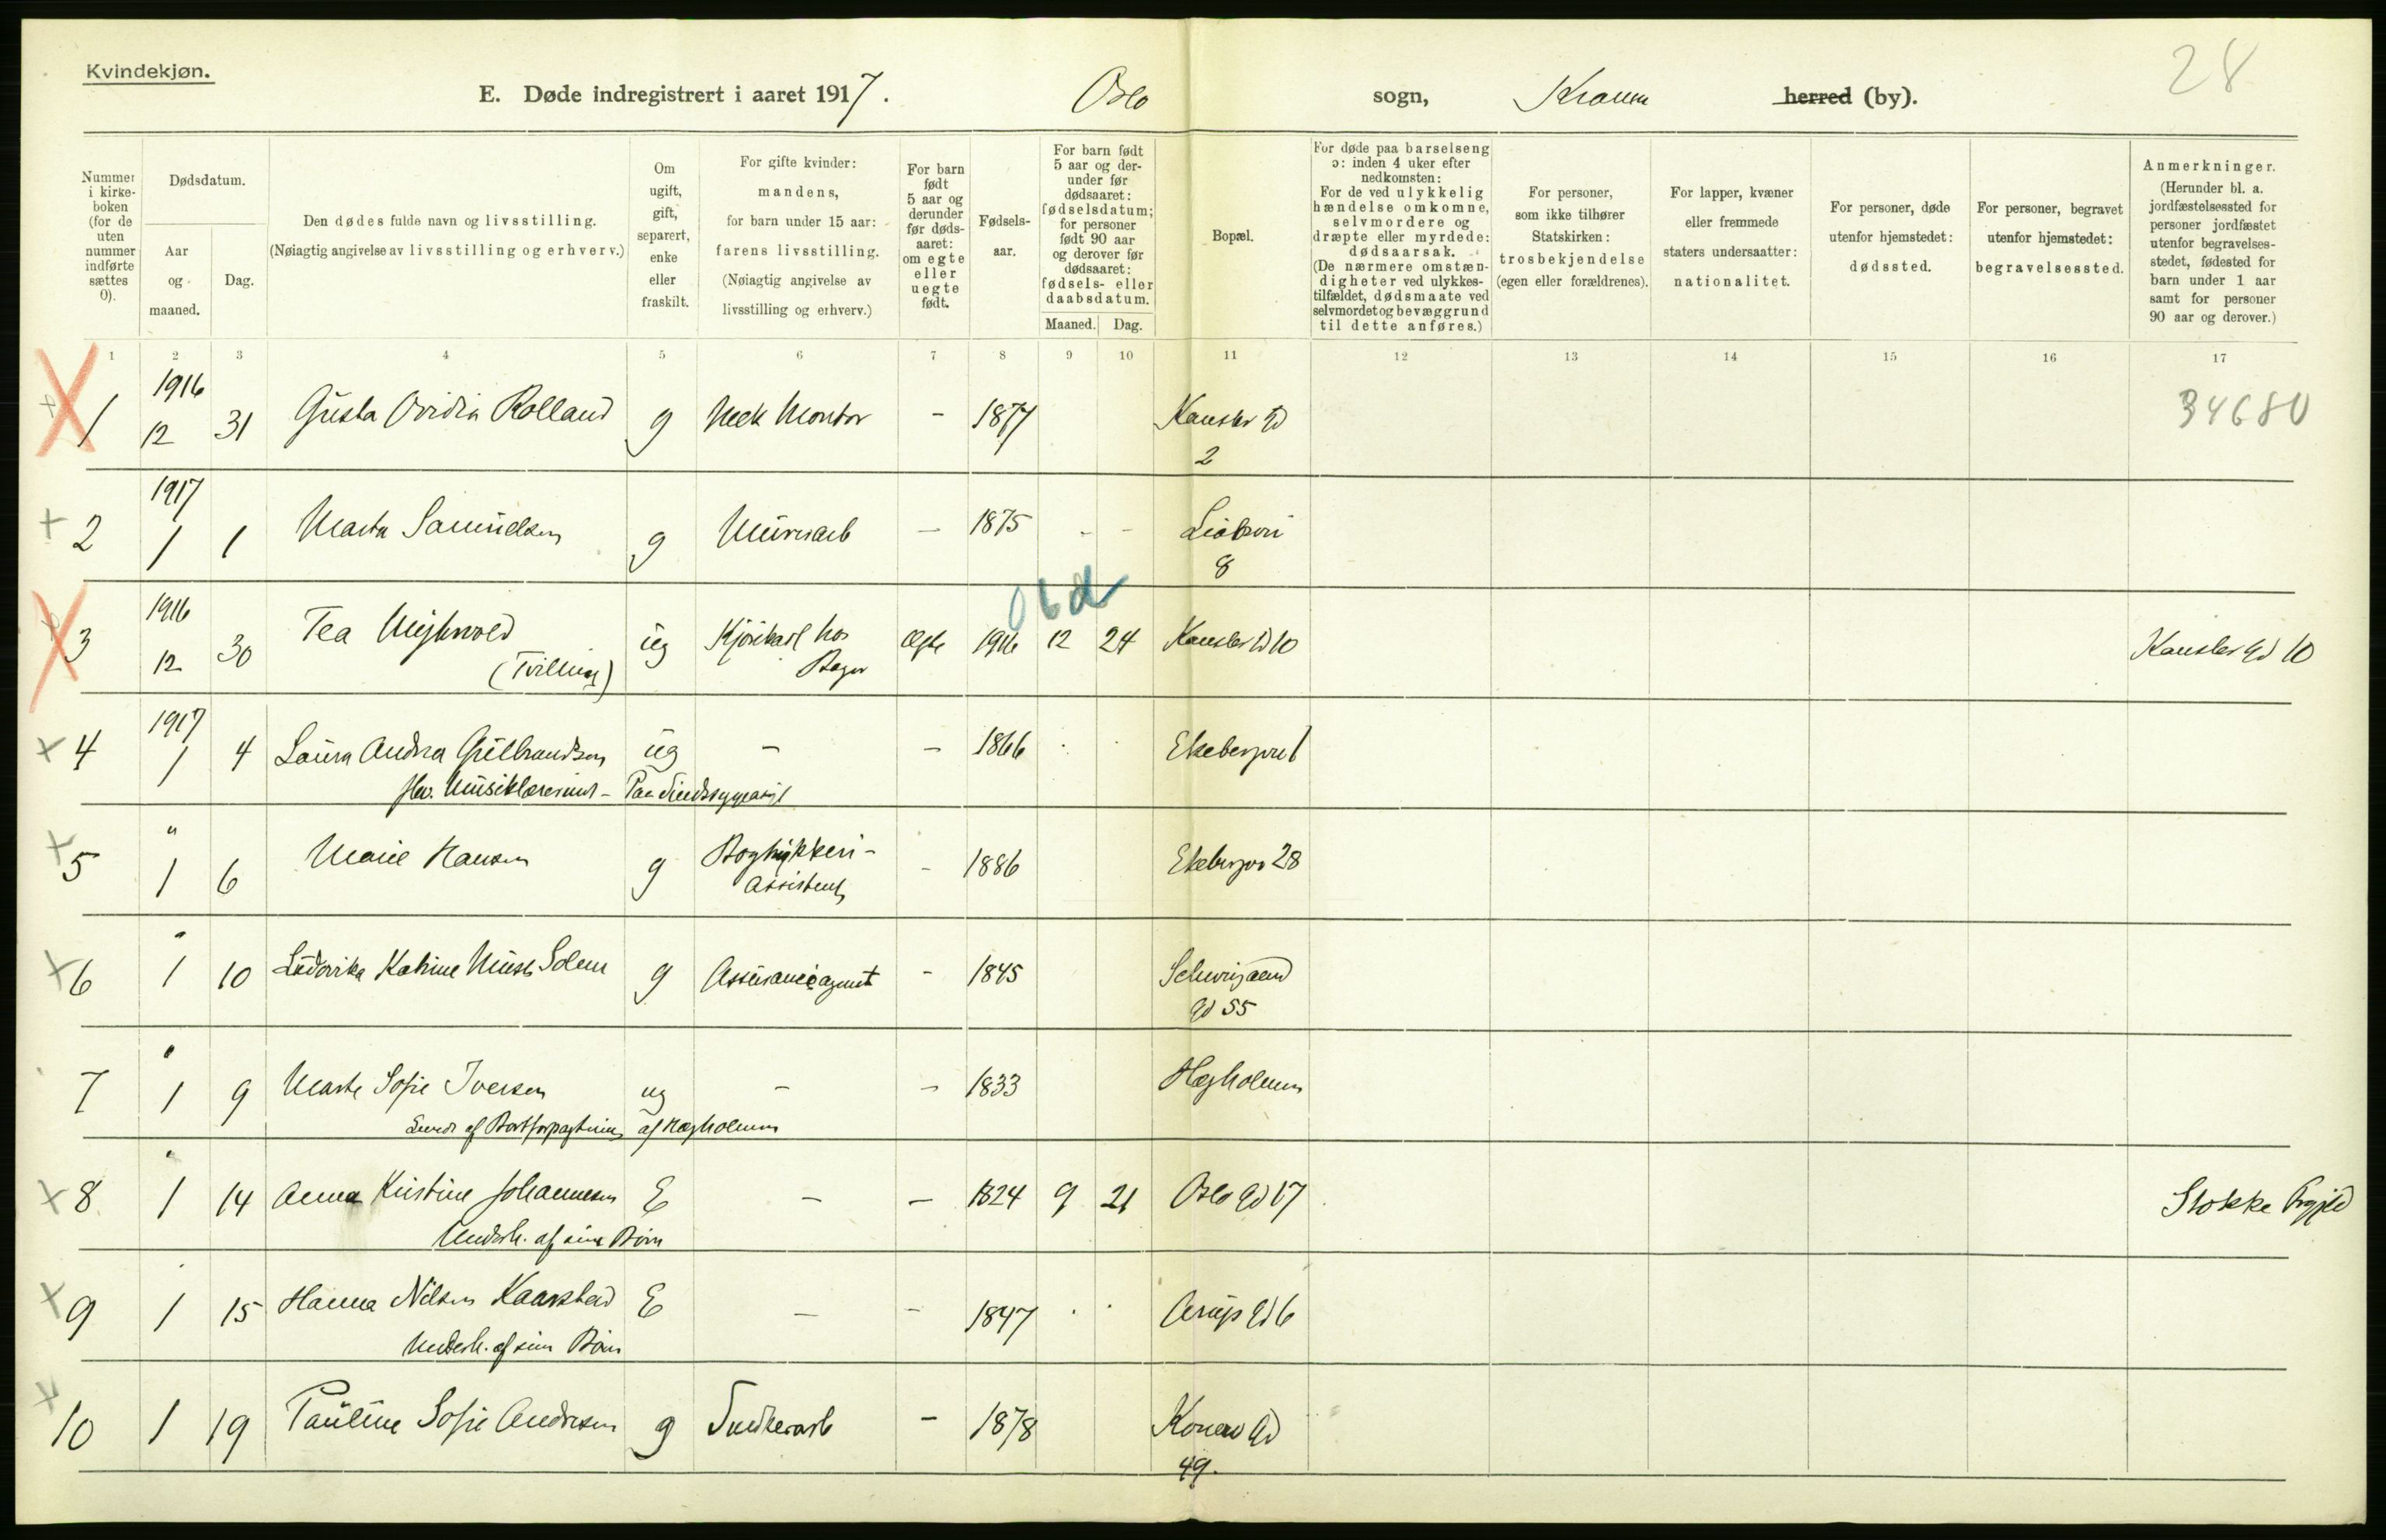 Kvindekjøn.
28
E. Døde indregistrert i aaret 1917. Oslo sogn, herred (by).
Nummer i kirkeboken (for de uten nummer indførte sættes 0).
Dødsdatum.
Aar og maaned.
Dag.
Den dødes fulde navn og livsstilling.
(Nøiagtig angivelse av livsstilling og erhverv.)
Om ugift, gift, separert, enke eller fraskilt.
For gifte kvinder: mandens, for barn under 15 aar: farens livsstilling.
(Nøiagtig angivelse av livsstilling og erhverv.)
For barn født 5 aar og derunder før dødsaaret: om egte eller uegte født.
Fødselsaar.
For barn født 5 aar og derunder før dødsaaret: fødselsdatum; for personer født 90 aar og derover før dødsaaret: fødsels- eller daabsdatum.
Maaned. Dag.
Bopæl.
For døde paa barselseng ɔ: inden 4 uker efter nedkomsten: For de ved ulykkelig hændelse omkomne, selvmordere og dræpte eller myrdede: dødsaarsak. (De nærmere omstændigheter ved ulykkestilfældet, dødsmaate ved selvmordet og bevæggrund til dette anføres.)
For personer, som ikke tilhører Statskirken: trosbekjendelse (egen eller forældrenes).
For lapper, kvæner eller fremmede staters undersaatter: nationalitet.
For personer, døde utenfor hjemstedet: dødssted.
For personer, begravet utenfor hjemstedet: begravelsessted.
Anmerkninger.
(Herunder bl. a. jordfæstelsessted for personer jordfæstet utenfor begravelsesstedet, fødested for barn under 1 aar samt for personer 90 aar og derover.)
1 2 3 4 5 6 7 8 9 10 11 12 13 14 15 16 17
1916
1 12 31 Gusta Ovidia Rolland g Mek Montør - 1877 Kansler Gd 34680
2
1917
2 1 1 Marta Samuelsen g Murerarb - 1875 - -
8
1916
3 12 30 Tea ug hos Ægte 1916 12 24 Kansler Gd 10 Kansler Gd 10
(Tvilling) Bager
1917
4 1 4 Laura Andrea Gulbrandsen ug - - 1866
Musiklærerinde - Paa Sindssygeasyl
"
5 1 6 Marie Hansen g Bogtrykkeri- - 1886 28
Assistent
"
6 1 10 Ludovika Katrine Solem g Assuranceagent - 1845 Schweigaard
Gd 55
"
7 1 9 Marte Sofie Iversen ug - - 1833 Hegholmen
af Hegholmen
"
8 1 14 Anna Kristine Johannesen E - - 1824 9 21 Oslo Gd 17 Stokke Prgjld
Underh. af sine Børn
9 1 15 Hanna Nilsen Kaarstad E - - 1847 Arups Gd 6
Underh. af sine Børn
10 1 19 Pauline Sofie Andresen g Snedkerarb - 1878 Konows Gd
49.